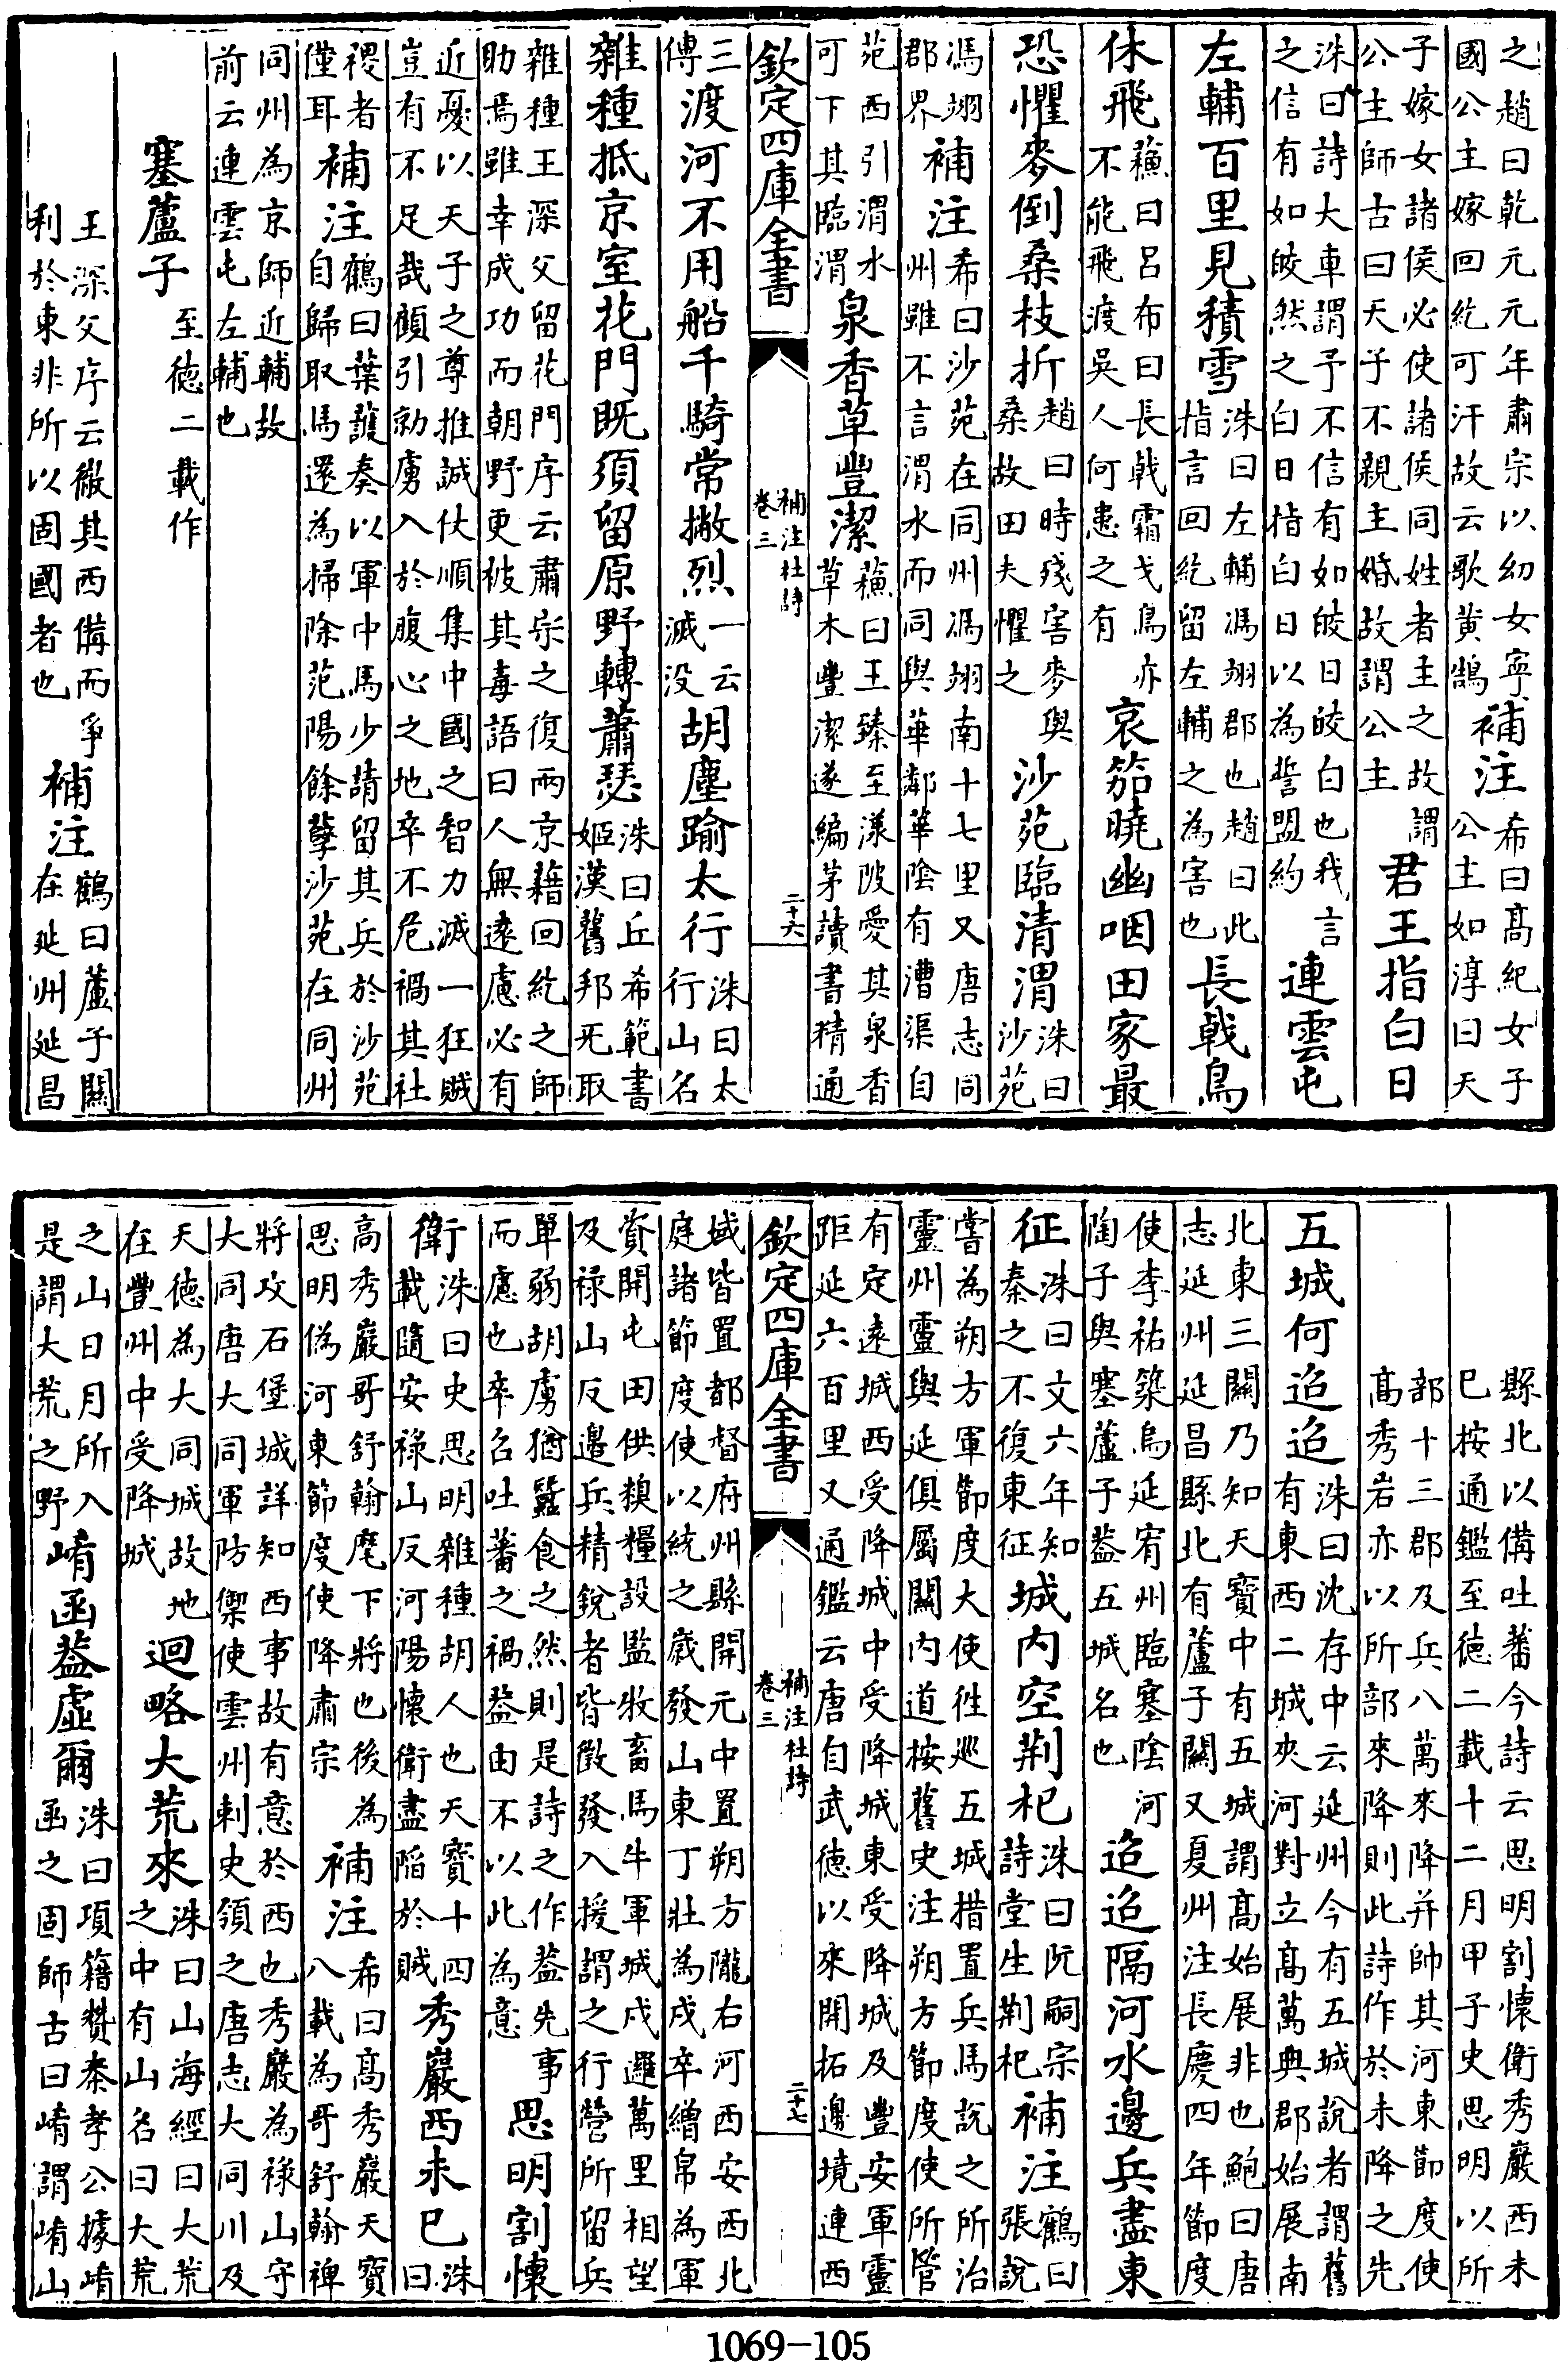 之趙曰乾元元年肅宗以幼女寧
國公主嫁回紇可汗故云歌黄鵠
補注
希曰髙紀女子
公主如淳曰天
子嫁女諸侯必使諸侯同姓者主之故謂
公主師古曰天子不親主婚故謂公主
君王指白日
洙曰詩大車謂予不信有如皎日皎白也我言
之信有如皎然之白日指白日以為誓盟約
連雲屯
左輔百里見積雪
洙曰左輔馮翊郡也趙曰此
指言回紇留左輔之為害也
長戟鳥
休飛
蘓曰呂布曰長戟霜戈鳥亦
不能飛渡吳人何患之有
哀笳曉幽咽田家最
恐懼麥倒桑枝折
趙曰時殘害麥與
桑故田夫懼之
沙苑臨清渭
洙曰
沙苑
馮翊
郡界
補注
希曰沙苑在同州馮翊南十七里又唐志同
州雖不言渭水而同與華鄰華隂有漕渠自
苑西引渭水
可下其臨渭
泉香草豐潔
蘓曰王臻至漾陂愛其泉香
草木豐潔遂編茅讀書精通
欽定四庫全書
補注杜詩
卷三
二十六
三
傳
渡河不用船千騎常撇烈
一云
滅没
胡塵踰太行
洙曰太
行山名
雜種抵京室花門既須留原野轉蕭瑟
洙曰丘希範書
姬漢舊邦无取
雜種王深父留花門序云肅宗之復兩京藉回紇之師
助焉雖幸成功而朝野更被其毒語曰人無逺慮必有
近憂以天子之尊推誠仗順集中國之智力滅一狂賊
豈有不足哉顧引勍虜入於腹心之地卒不危禍其社
稷者
僅耳
補注
鶴曰葉䕶奏以軍中馬少請留其兵於沙苑
自歸取馬還為掃除范陽餘孽沙苑在同州
同州為京師近輔故
前云連雲屯左輔也
塞蘆子
至徳二載作
王深父序云微其西備而爭
利於東非所以固國者也
補注
鶴曰蘆子關
在延州延昌
縣北以備吐蕃今詩云思明割懷衛秀巖西未
已按通鑑至徳二載十二月甲子史思明以所
部十三郡及兵八萬來降并帥其河東節度使
髙秀岩亦以所部來降則此詩作於未降之先
五城何迢迢
洙曰沈存中云延州今有五城說者謂舊
有東西二城夾河對立髙萬興郡始展南
北東三關乃知天寳中有五城謂髙始展非也鮑曰唐
志延州延昌縣北有蘆子關又夏州注長慶四年節度
使李祐築烏延宥州臨塞隂河
陶子與塞蘆子葢五城名也
迢迢隔河水邊兵盡東
征
洙曰文六年知
秦之不復東征
城内空荆杞
洙曰阮嗣宗
詩堂生荆杞
補注
鶴曰
張說
嘗為朔方軍節度大使徃巡五城措置兵馬說之所治
靈州靈與延俱屬關内道按舊史注朔方節度使所管
有定逺城西受降城中受降城東受降城及豐安軍靈
距延六百里又通鑑云唐自武徳以來開拓邊境連西
欽定四庫全書
補注杜詩
卷三
二十七
域皆置都督府州縣開元中置朔方隴右河西安西北
庭諸節度使以統之歲發山東丁壯為戍卒繒帛為軍
資開屯田供糗糧設監牧畜馬牛軍城戍邏萬里相望
及禄山反邊兵精鋭者皆徵發入援謂之行營所留兵
單弱胡虜猶蠶食之然則是詩之作葢先事
而慮也卒召吐蕃之禍葢由不以此為意
思明割懷
衛
洙曰史思明雜種胡人也天寳十四
載隨安禄山反河陽懷衛盡陷於賊
秀巖西未已
洙
曰
高秀巖哥舒翰麾下將也後為
思明偽河東節度使降肅宗
補注
希曰髙秀巖天寳
八載為哥舒翰裨
將攻石堡城詳知西事故有意於西也秀巖為禄山守
大同唐大同軍防禦使雲州刺史領之唐志大同川及
天徳為大同城故地
在豐州中受降城
迴略大荒來
洙曰山海經曰大荒
之中有山名曰大荒
之山日月所入
是謂大荒之野
崤函葢虚爾
洙曰項籍贊秦孝公據崤
函之固師古曰崤謂崤山
1069-105